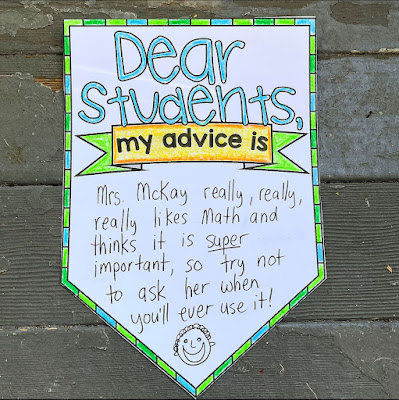 Dear
Students,
my advice is
Mrs. McKay really, really,
really likes Math and
thinks it is super
important, so try not
to ask her when
you'll ever use it!